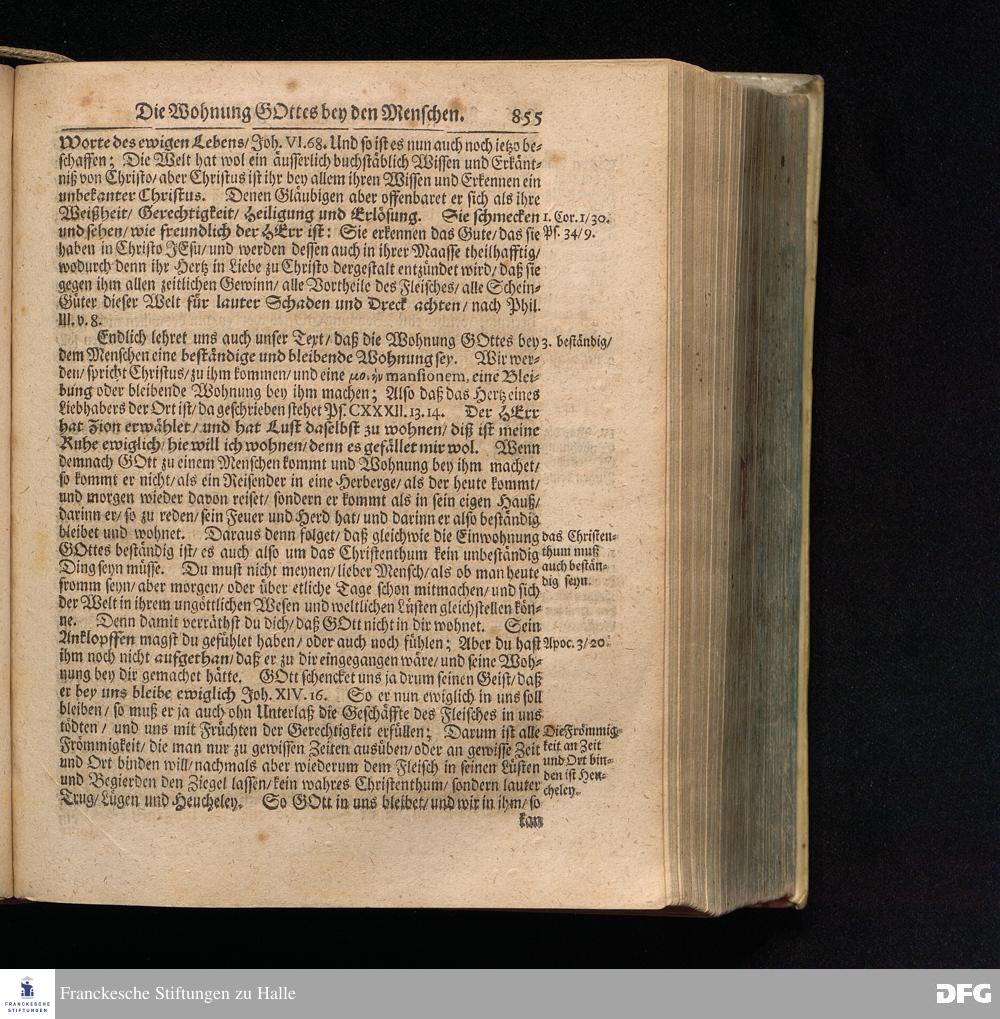 Die Wohnung GOttes bey den Menschen. 855
Worte des ewigen Lebens/ Joh. VI. 68. Und so ist es nun auch noch ietzo be-
schaffen; Die Welt hat wol ein äusserlich buchstäblich Wissen und Erkänt-
niß von Christo/ aber Christus ist ihr bey allem ihren Wissen und Erkennen ein
unbekanter Christus. Denen Gläubigen aber offenbaret er sich als ihre
Weißheit/ Gerechtigkeit/ Heiligung und Erlösung. Sie schmecken
und sehen/ wie freundlich der HErr ist: Sie erkennen das Gute/ das sie
haben in Christo JEsu/ und werden dessen auch in ihrer Maasse theilhafftig/
wodurch denn ihr Hertz in Liebe zu Christo dergestalt entzündet wird/ daß sie
gegen ihm allen zeitlichen Gewinn/ alle Vortheile des Fleisches/ alle Schein-
Güter dieser Welt für lauter Schaden und Dreck achten/ nach Phil.
III. v. 8.
1. Cor. 1/30.
Ps. 34/9.
Endlich lehret uns auch unser Text/ daß die Wohnung GOttes bey
dem Menschen eine beständige und bleibende Wohnung sey. Wir wer-
den/ spricht Christus/ zu ihm kommen/ und eine mansionem, eine Blei-
bung oder bleibende Wohnung bey ihm machen; Also daß das Hertz eines
Liebhabers der Ort ist/ da geschrieben stehet Ps. CXXXII. 13. 14. Der HErr
hat Zion erwählet/ und hat Lust daselbst zu wohnen/ diß ist meine
Ruhe ewiglich/ hie will ich wohnen/ denn es gefället mir wol. Wenn
demnach GOtt zu einem Menschen kommt und Wohnung bey ihm machet/
so kommt er nicht/ als ein Reisender in eine Herberge/ als der heute kommt/
und morgen wieder davon reiset/ sondern er kommt als in sein eigen Hauß/
darinn er/ so zu reden/ sein Feuer und Herd hat/ und darinn er also beständig
bleibet und wohnet. Daraus denn folget/ daß gleichwie die Einwohnung
GOttes beständig ist/ es auch also um das Christenthum kein unbeständig
Ding seyn müsse. Du must nicht meynen/ lieber Mensch/ als ob man heute
fromm seyn/ aber morgen/ oder über etliche Tage schon mitmachen/ und sich
der Welt in ihrem ungöttlichen Wesen und weltlichen Lüsten gleichstellen kön-
ne. Denn damit verräthst du dich/ daß GOtt nicht in dir wohnet. Sein
Anklopffen magst du gefühlet haben/ oder auch noch fühlen; Aber du hast
ihm noch nicht aufgethan/ daß er zu dir eingegangen wäre/ und seine Woh-
nung bey dir gemachet hätte. GOtt schencket uns ja drum seinen Geist/ daß
er bey uns bleibe ewiglich Joh. XIV. 16. So er nun ewiglich in uns soll
bleiben/ so muß er ja auch ohn Unterlaß die Geschäffte des Fleisches in uns
tödten/ und uns mit Früchten der Gerechtigkeit erfüllen; Darum ist alle
Frömmigkeit/ die man nur zu gewissen Zeiten ausüben/ oder an gewisse Zeit
und Ort binden will/ nachmals aber wiederum dem Fleisch in seinen Lüsten
und Begierden den Ziegel lassen/ kein wahres Christenthum/ sondern lauter
Trug/ Lügen und Heucheley. So GOtt in uns bleibet/ und wir in ihm/ so
kan
3. beständig/
das Christen-
thum muß
auch bestän-
dig seyn.
Apoc. 3/20.
Die Frömmig-
keit an Zeit
und Ort bin-
den ist Heu-
cheley.
FRANCKESCHE
STIFTUNGEN
Franckesche Stiftungen zu Halle
DFG